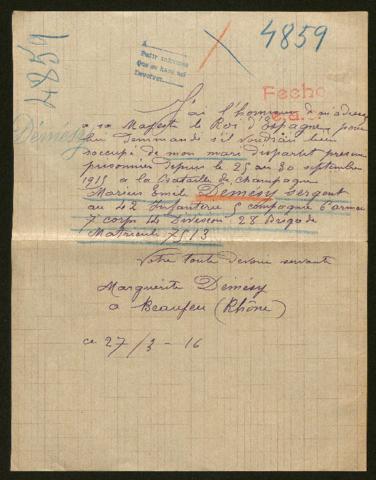 4859
4859
Fecho
Demesy
J'ai l'honneur de m'adresser
a sa Majesté le Roi d'Espagne pour
lui demande s'il voudrai bien
s'occupé de mon mari disparut presume
prisonnier depuis le 25 au 30 septembre
1915 a la Bataille de Champagne
Marius Emile Demesy Sergent
au 42 Infanterie 5 compagnie 6 armee
7 corp 14 Division 28 Brigade
Matricule 7513
Votre toute devoué servante
Marguerite Demesy
a Beaujeu (Rhône)
ce 27/3 - 16